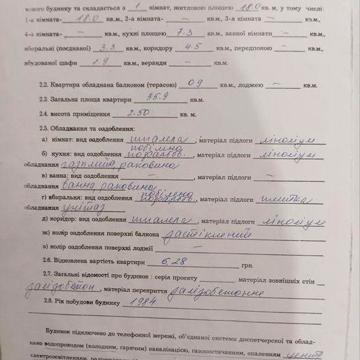 нового будинку та складається з 1 кімнат, житловою площею 18.0 кв. м, у тому числі:
1-а кімната- 18.0 кв.м, 2-а кімната- — кв.м, 3-а кімната - — кв.м,
кв.м, кухні площею 7.3 кв.м, ванної кімнати — кв.м,
вбиральні (поєднаної) 3.3 кв.м, коридору 4.5 кв.м, передпокою — кв.м,
вбудованої шафи 1.9 кв.м, веранди — кв.м.
2.2. Квартира обладнана балконом (терасою) 0.9 кв.м, лоджією — кв.м.
2.3. Загальна площа квартири кв.м.
2.4. висота приміщення 2.50 м.
2.5. Обладнання та оздоблення:
а) кімнат: вид оздоблення шпалера, матеріал підлоги лінолеум
б) кухня: вид оздоблення матеріал підлоги лінолеум
обладнання газплита раковина
в) ванна: вид оздоблення — матеріал підлоги —
обладнання ванна раковина
г) вбиральня: вид оздоблення матеріал підлоги плитка
обладнання унітаз
д) коридор: вид оздоблення шпалера, матеріал підлоги лінолеум
ж) колір оздоблення поверхні балкона
з) колір оздоблення поверхні лоджії —
2.6. Відновлена вартість квартири 628 грн.
2.7. Загальні відомості про будинок : серія проекту матеріал зовнішніх стін
залізобетон, матеріал перекриття залізобетонне
2.8. Рік побудови будинку 1984
Будинок підключено до телефонної мережі, об'єднаної системи диспетчерської та облад-
нано водопроводом (холодним, гарячим) каналізацією, газопостачанням, опаленням